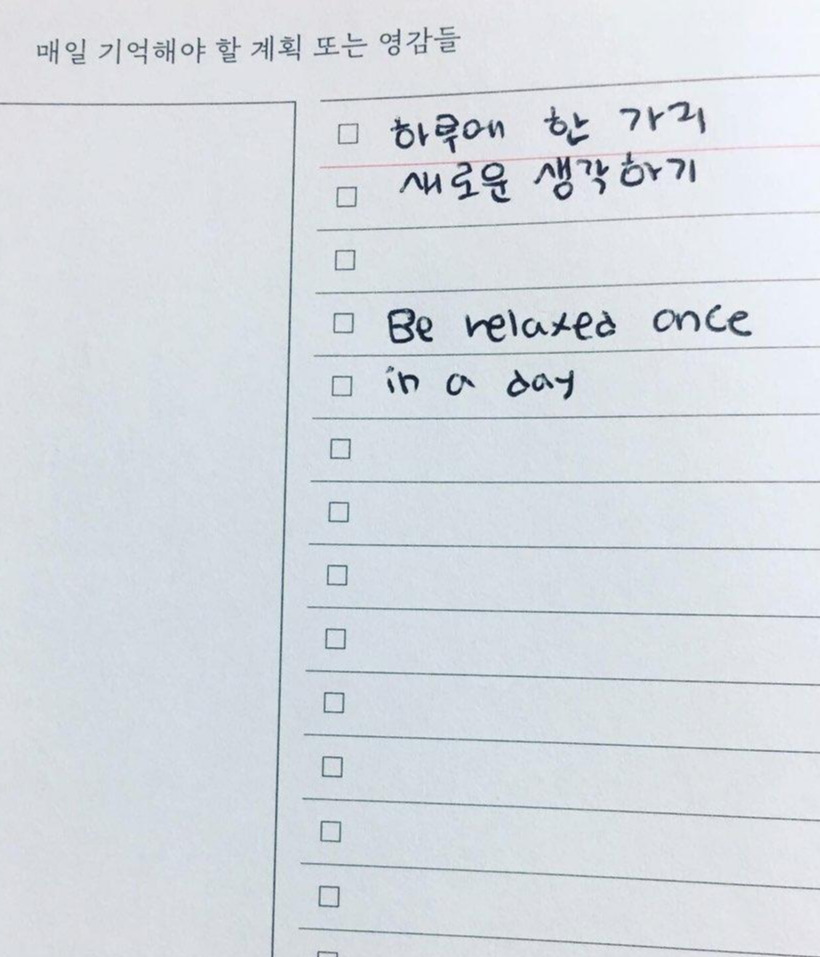 매일 기억해야 할 계획 또는 영감들
하루에 한 가지
새로운 생각하기
Be relaxed once
in a day